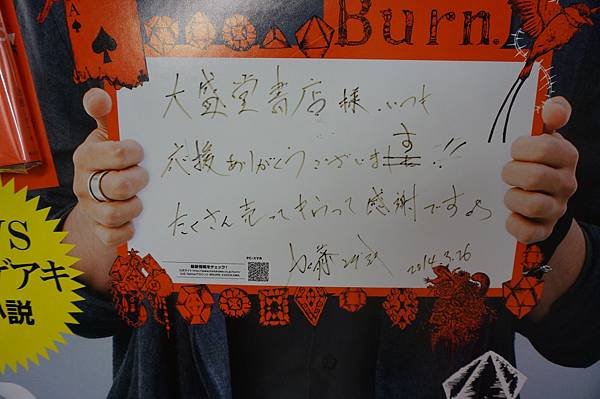 A
Burn.
大盛堂書店様、いつも
応援ありがとうございます!!
たくさん売ってもらって感謝ですよ
加藤シゲアキ 2014.3.26
PC・スマホ
最新情報をチェック!
VS
ゲアキ
小説
Burn.